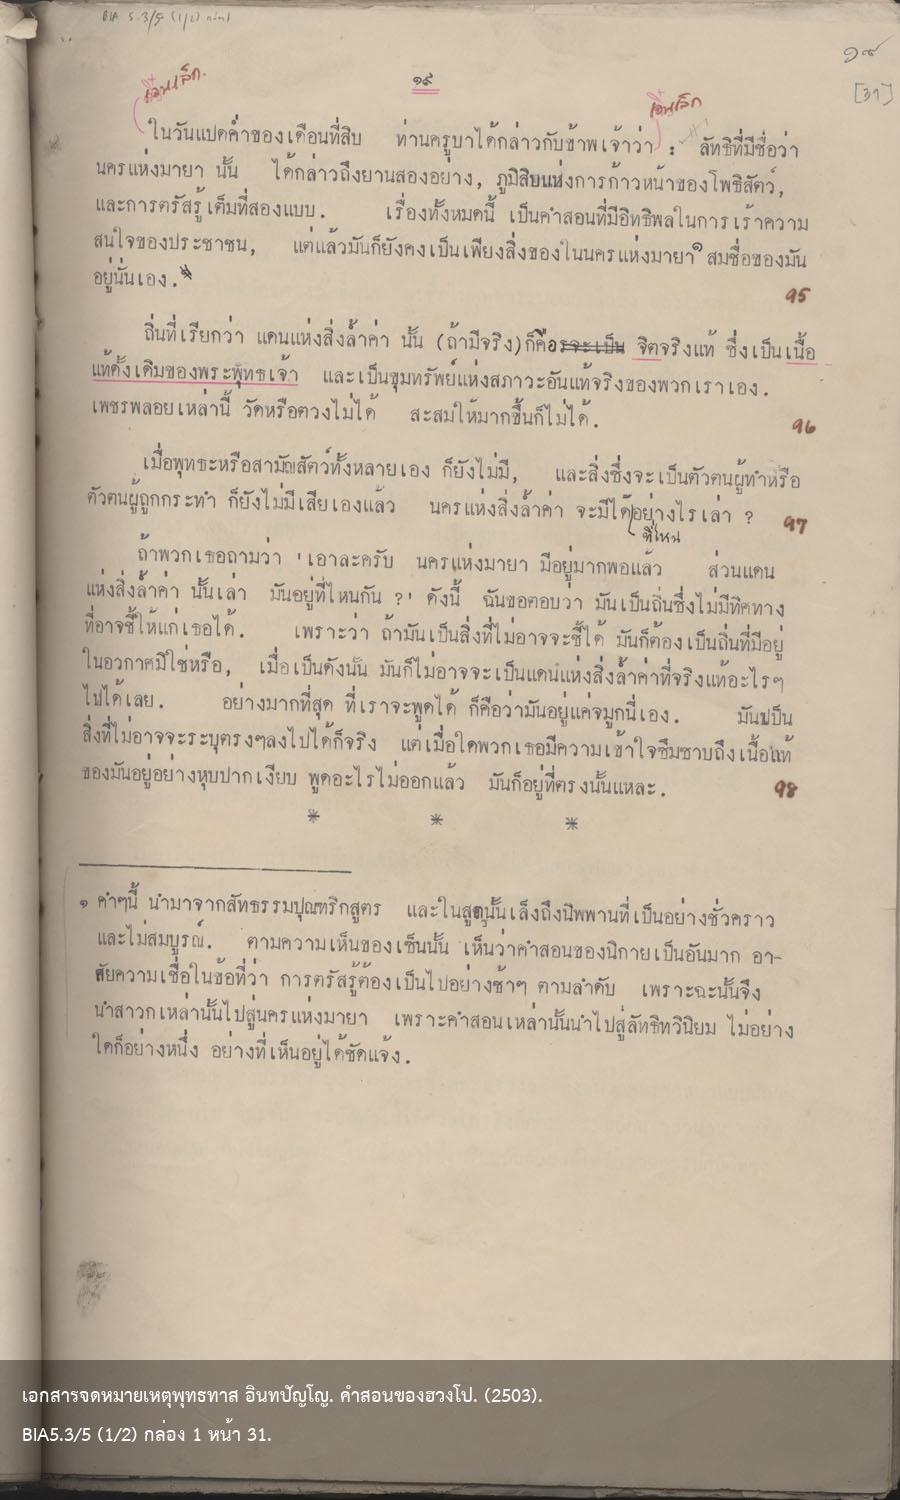 BIA 5.3/5 (1/2)
๑๙
๑๙
[31]
เอนเล็ก
เอนเล็ก
ในวันแปดค่ำของเดือนที่สิบ ท่านครูบาได้กล่าวกับข้าพเจ้าว่า : ลัทธิที่มีชื่อว่า
นครแห่งมายา นั้น ได้กล่าวถึงยานสองอย่าง, ภูมิสิบแห่งการก้าวหน้าของโพธิสัตว์,
และการตรัสรู้เต็มที่สองแบบ. เรื่องทั้งหมดนี้ เป็นคำสอนที่มีอิทธิพลในการเร้าความ
สนใจของประชาชน, แต่แล้วมันก็ยังคงเป็นเพียงสิ่งของในนครแห่งมายา๑ สมชื่อของมัน
อยู่นั่นเอง.
95
ถิ่นที่เรียกว่า แดนแห่งสิ่งล้ำค่า นั้น (ถ้ามีจริง)ก็คือรจะเป็น จิตจริงแท้ ซึ่งเป็นเนื้อ
แท้ดั้งเดิมของพระพุทธเจ้า และเป็นขุมทรัพย์แห่งสภาวะอันแท้จริงของพวกเราเอง.
เพชรพลอยเหล่านี้ วัดหรือตวงไม่ได้ สะสมให้มากขึ้นก็ไม่ได้.
96
เมื่อพุทธะหรือสามัญสัตว์ทั้งหลายเอง ก็ยังไม่มี, และสิ่งซึ่งจะเป็นตัวตนผู้ทำหรือ
ตัวตนผู้ถูกกระทำ ก็ยังไม่มีเสียเองแล้ว นครแห่งสิ่งล้ำค่า จะมีได้อย่างไรเล่า ?
97
ที่ไหน
ถ้าพวกเธอถามว่า 'เอาละครับ นครแห่งมายา มีอยู่มากพอแล้ว ส่วนแดน
แห่งสิ่งล้ำค่า นั้นเล่า มันอยู่ที่ไหนกัน ?' ดังนี้ ฉันขอตอบว่า มันเป็นถิ่นซึ่งไม่มีทิศทาง
ที่อาจชี้ให้แก่เธอได้. เพราะว่า ถ้ามันเป็นสิ่งที่ไม่อาจจะชี้ได้ มันก็ต้องเป็นถิ่นที่มีอยู่
ในอวกาศมิใช่หรือ, เมื่อเป็นดังนั้น มันก็ไม่อาจจะเป็นแดนแห่งสิ่งล้ำค่าที่จริงแท้อะไรๆ
ไปได้เลย. อย่างมากที่สุด ที่เราจะพูดได้ ก็คือว่ามันอยู่แค่จมูกนี่เอง. มันเป็น
สิ่งที่ไม่อาจจะระบุตรงๆลงไปได้ก็จริง แต่เมื่อใดพวกเธอมีความเข้าใจซึมซาบถึงเนื้อแท้
ของมันอยู่อย่างหุบปากเงียบ พูดอะไรไม่ออกแล้ว มันก็อยู่ที่ตรงนั้นแหละ.
98
* * *
๑ คำๆนี้ นำมาจากสัทธรรมปุณฑริกสูตร และในสูตรนั้นเล็งถึงนิพพานที่เป็นอย่างชั่วคราว
และไม่สมบูรณ์. ตามความเห็นของเซ็นนั้น เห็นว่าคำสอนของนิกายเป็นอันมาก อา-
ศัยความเชื่อในข้อที่ว่า การตรัสรู้ต้องเป็นไปอย่างช้าๆ ตามลำดับ เพราะฉะนั้นจึง
นำสาวกเหล่านั้นไปสู่นครแห่งมายา เพราะคำสอนเหล่านั้นนำไปสู่ลัทธิทวินิยม ไม่อย่าง
ใดก็อย่างหนึ่ง อย่างที่เห็นอยู่ได้ชัดแจ้ง.
เอกสารจดหมายเหตุพุทธทาส อินทปัญโญ. คำสอนของฮวงโป. (2503).
BIA5.3/5 (1/2) กล่อง 1 หน้า 31.